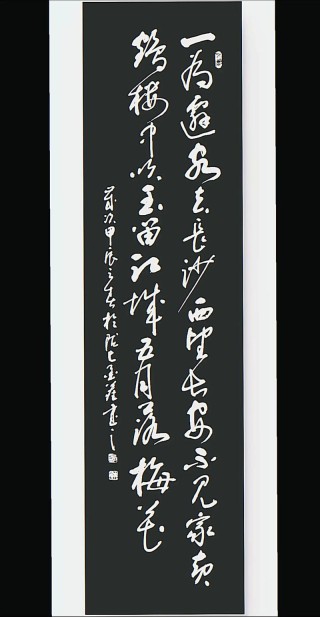 一為遷客去長沙西望長安不見家黄
鶴樓中吹玉笛江城五月落梅花
歲次甲辰之春於